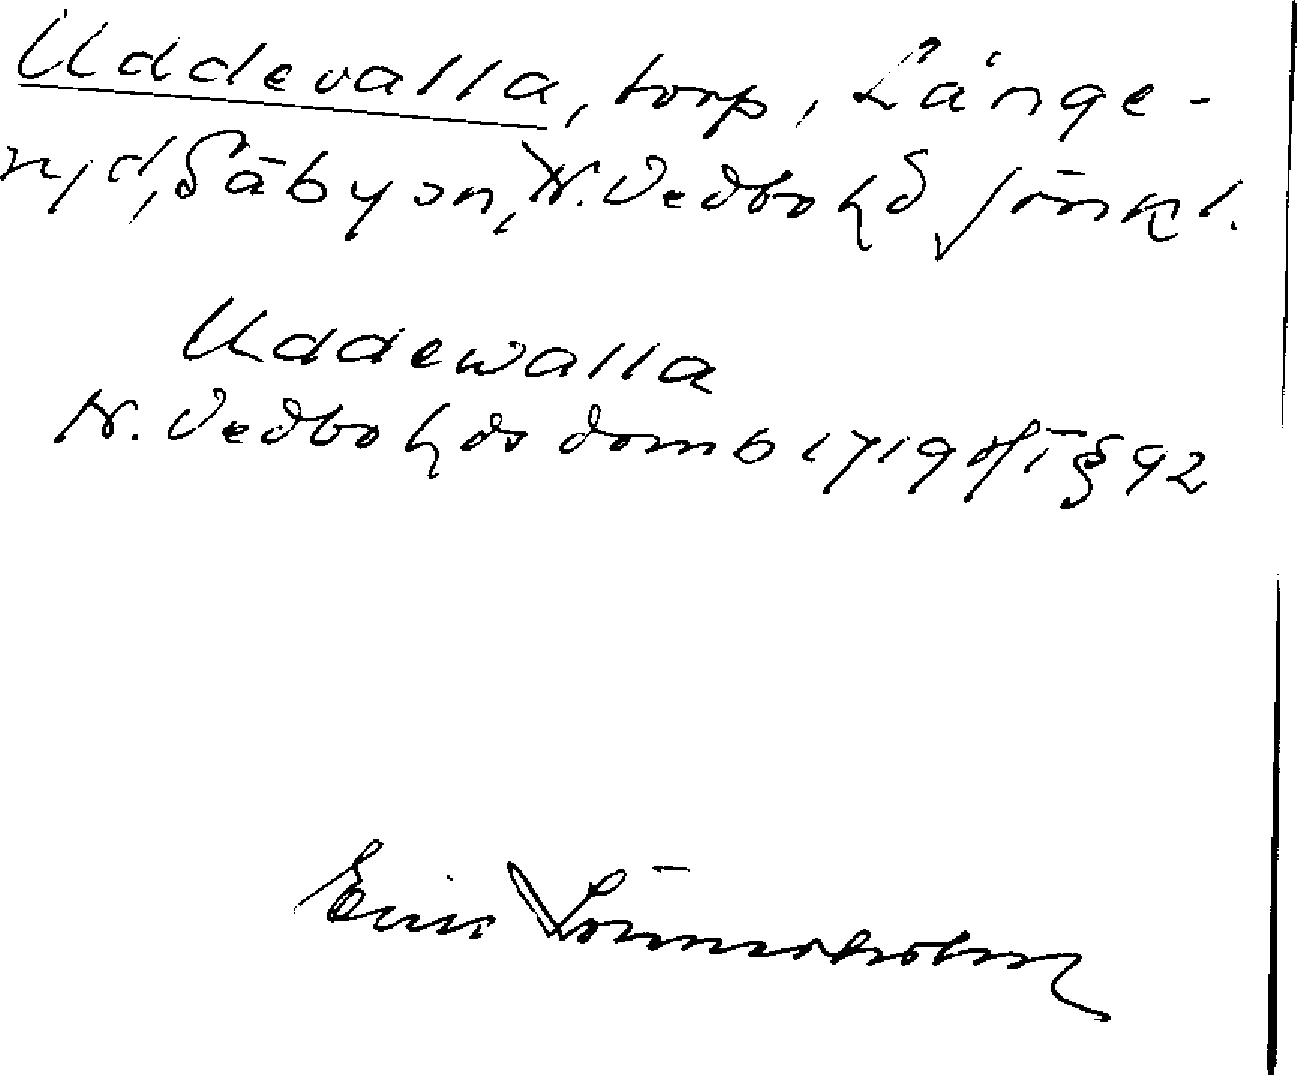 Uddevalla, torp, Länge-
ryd, Säby sn, N. Vedbo hd Jönk l.
Uddewalla
N. Vedbo hds domb 1719 § 92